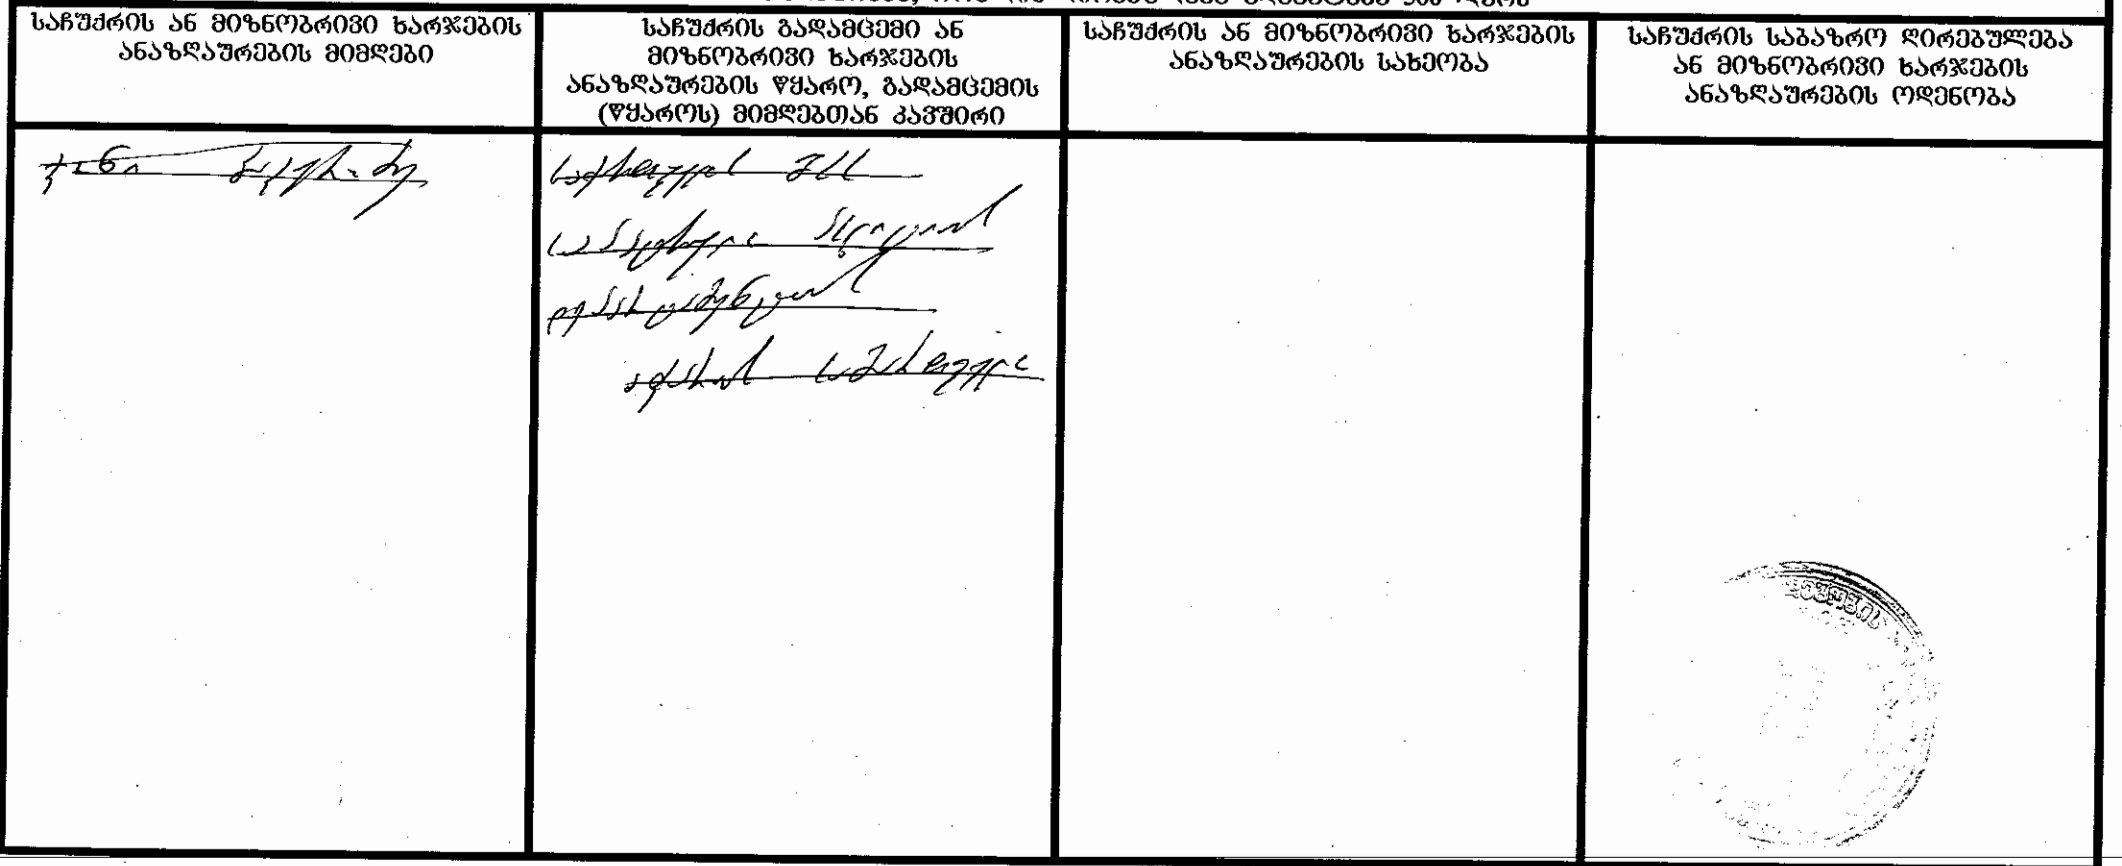 საჩუქრის ან მიზნობრივი ხარჯების
ანაზღაურების მიმღები
საჩუქრის გადამცემი ან
მიზნობრივი ხარჯების
ანაზღაურების წყარო, გადამცემის
(წყაროს) მიმღებთან კავშირი
საჩუქრის ან მიზნობრივი ხარჯების
ანაზღაურების სახეობა
საჩუქრის საბაზრო ღირებულება
ან მიზნობრივი ხარჯების
ანაზღაურების ოდენობა
საქართველოს შსს
საპატრულო პოლიციის
დეპარტამენტის
აჭარის სამმართველო